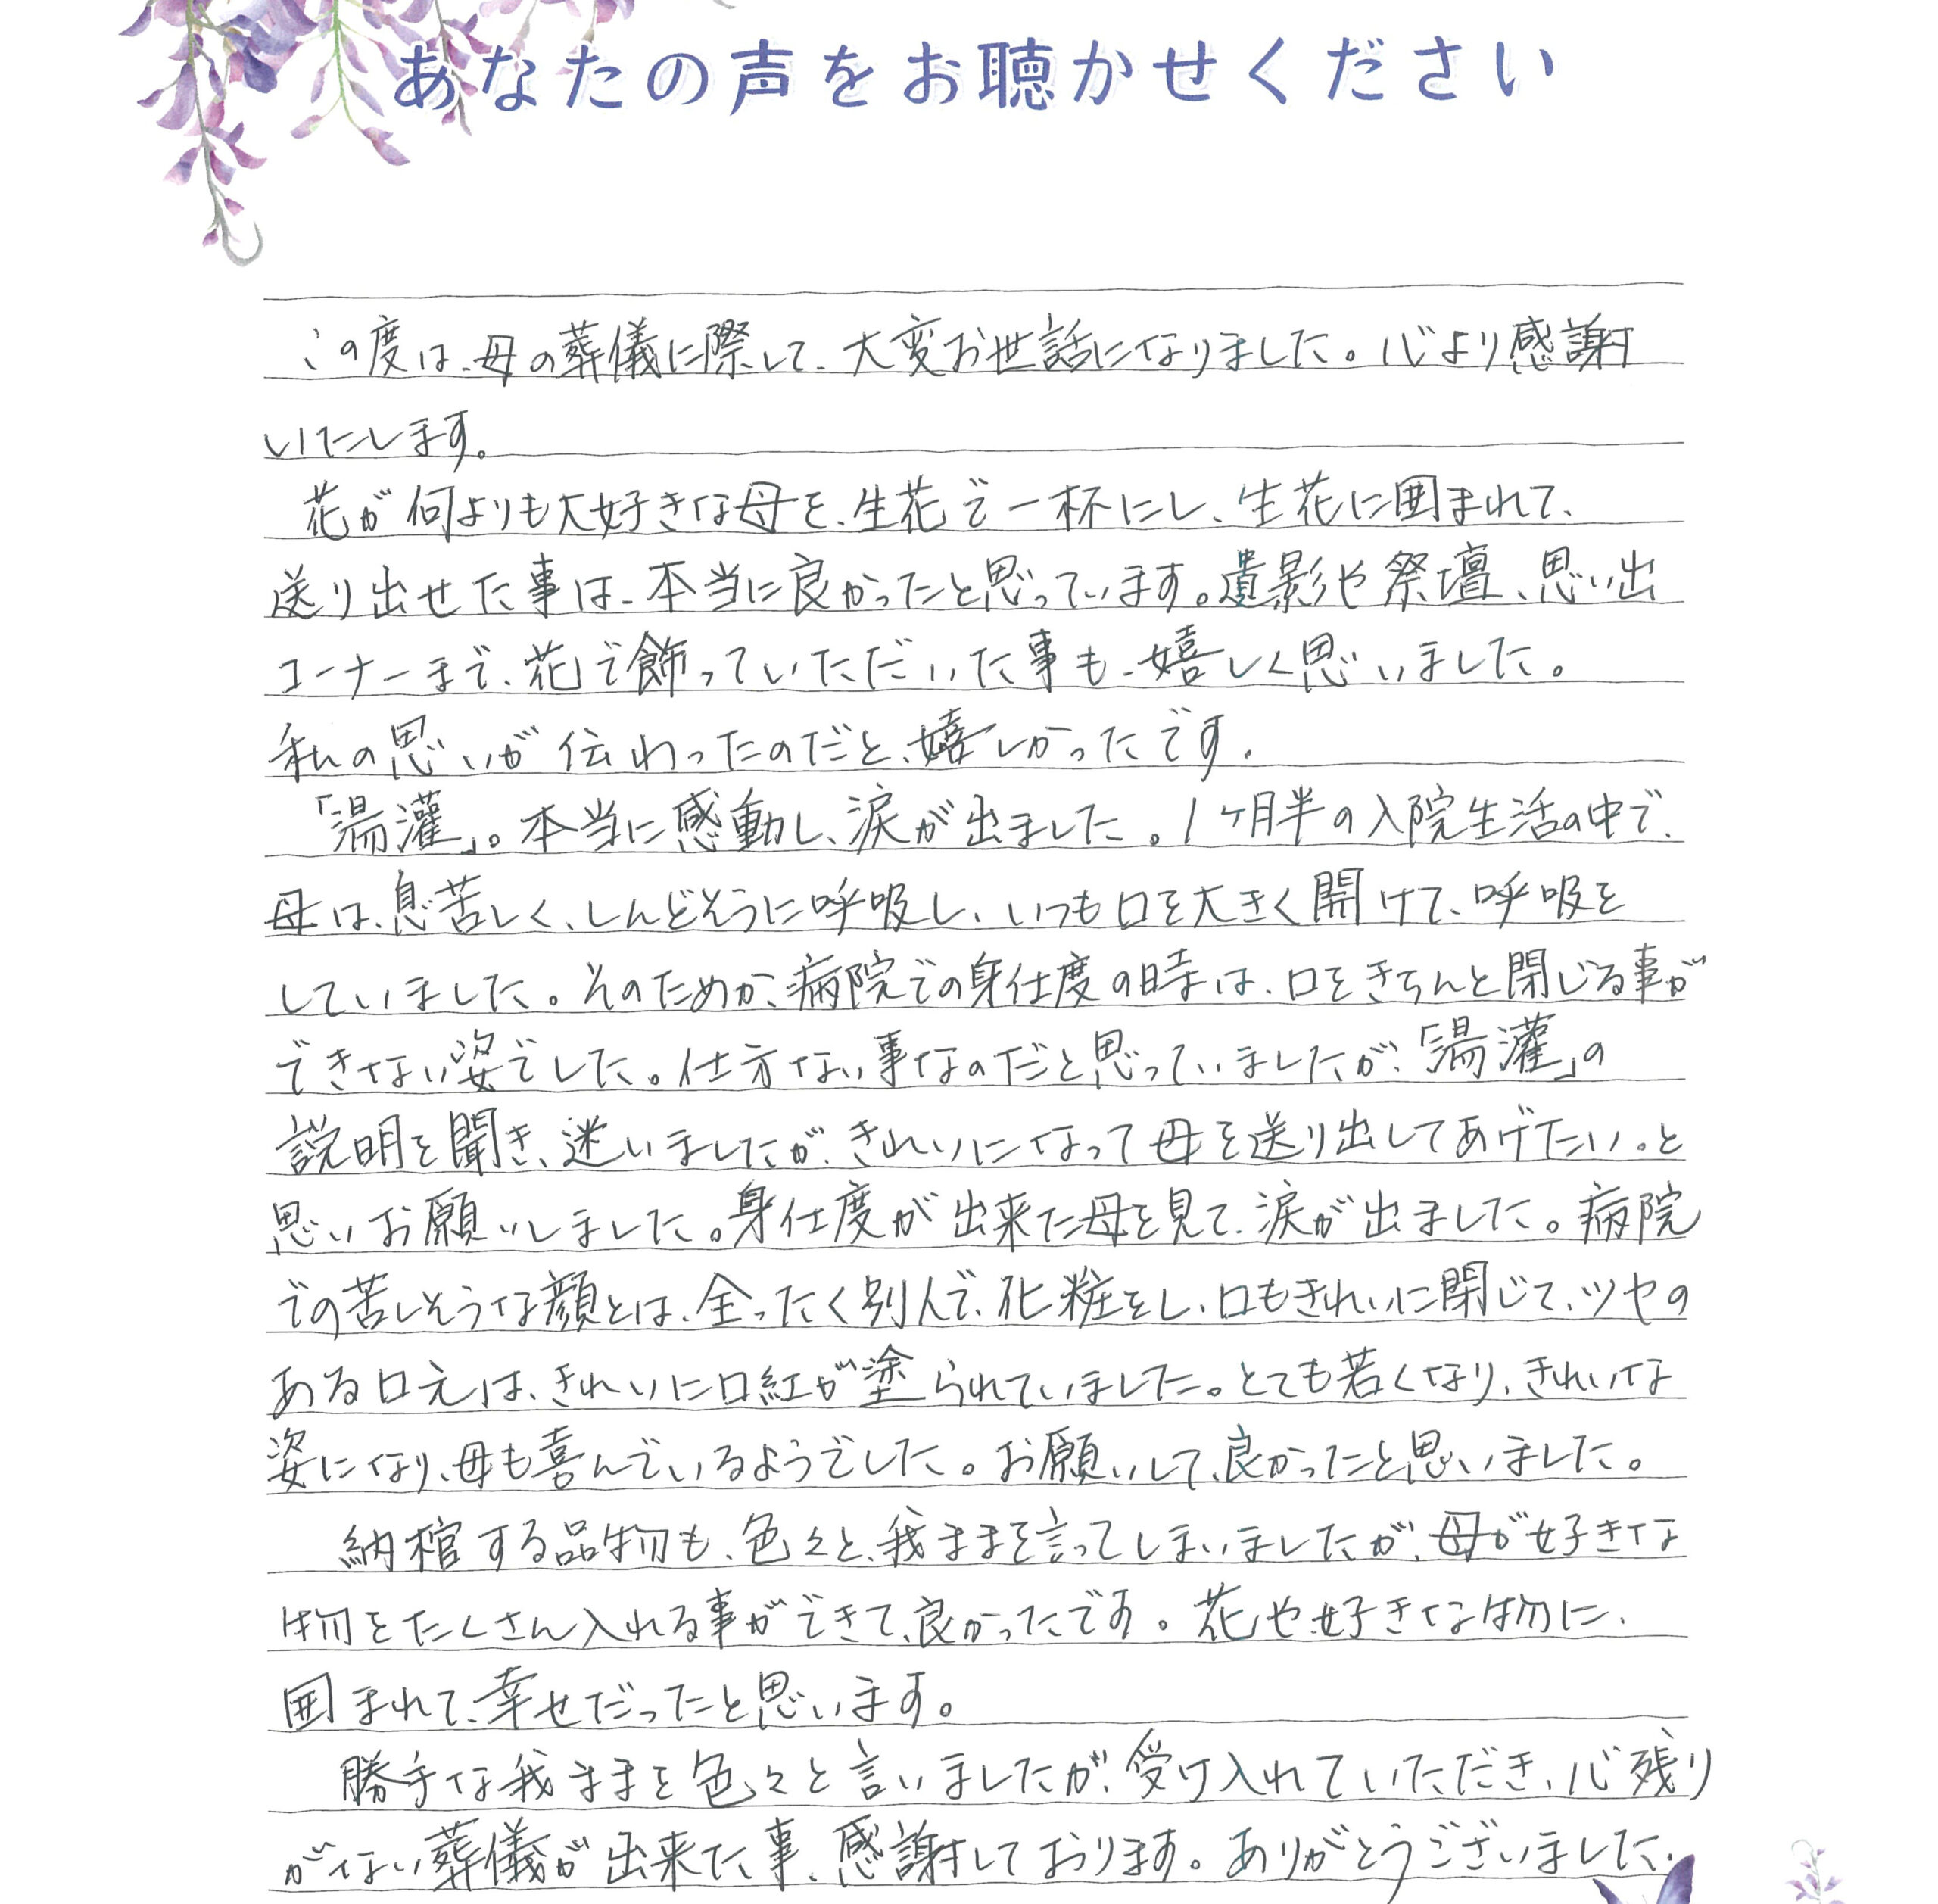 あなたの声をお聴かせください
この度は、母の葬儀に際して、大変お世話になりました。心より感謝
いたします。
花が何よりも大好きな母を、生花で一杯にし、生花に囲まれて、
送り出せた事は、本当に良かったと思っています。遺影や祭壇、思い出
コーナーまで、花で飾っていただいた事も、嬉しく思いました。
私の思いが伝わったのだと、嬉しかったです。
「湯灌」。本当に感動し、涙が出ました。1ヶ月半の入院生活の中で、
母は、息苦しく、しんどそうに呼吸し、いつも口を大きく開けて、呼吸を
していました。そのためか、病院での身仕度の時は、口をきちんと閉じる事が
できない姿でした。仕方ない事なのだと思っていましたが、「湯灌」の
説明を聞き、迷いましたが、きれいになって母を送り出してあげたい。と
思いお願いしました。身仕度が出来た母を見て、涙が出ました。病院
での苦しそうな顔とは、全ったく別人で、化粧をし、口もきれいに閉じて、ツヤの
ある口元は、きれいに口紅が塗られていました。とても若くなり、きれいな
姿になり、母も喜んでいるようでした。お願いして、良かったと思いました。
納棺する品物も、色々と、我ままを言ってしまいましたが、母が好きな
物をたくさん入れる事ができて、良かったです。花や好きな物に、
囲まれて、幸せだったと思います。
勝手な我ままを色々と言いましたが、受け入れていただき、心残り
がない葬儀が出来た事、感謝しております。ありがとうございました。